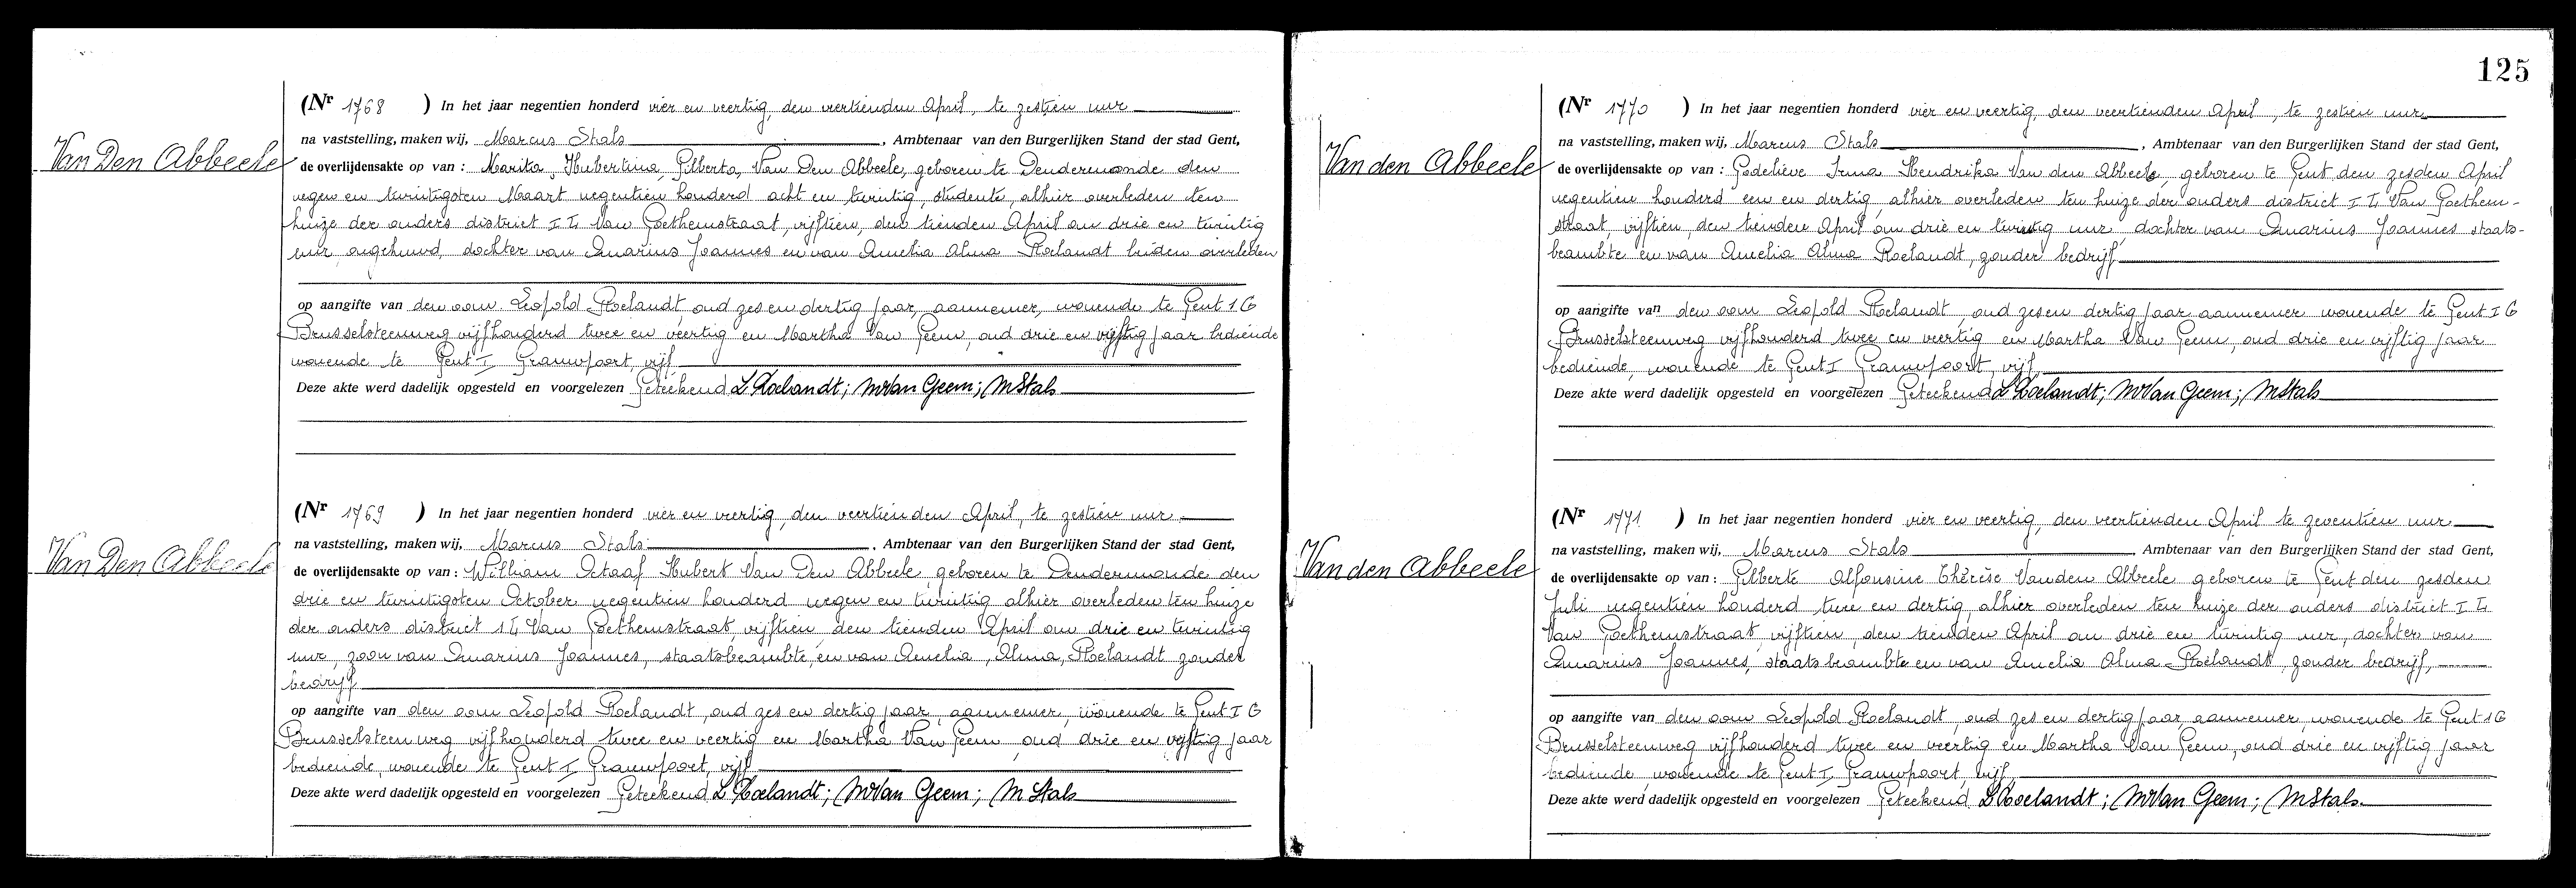 Van Den Abbeele
(Nr 1768 ) In het jaar negentien honderd vier en veertig, den veertienden April, te zestien uur
na vaststelling, maken wij, Marcus Stals, Ambtenaar van den Burgerlijken Stand der stad Gent,
de overlijdensakte op van : Marika, Hubertina, Gilberta, Van Den Abbeele, geboren te Dendermonde den
negen en twintigsten Maart negentien honderd acht en twintig, studente, alhier overleden ten
huize der ouders district I L Van Goethemstraat, vijftien, den tienden April om drie en twintig
uur, ongehuwd, dochter van Omarius Joannes en van Amelia Alma Roelandt beiden overleden
op aangifte van den oom Leopold Roelandt, oud zes en dertig jaar, aannemer, wonende te Gent 1 G
Brusselsteenweg vijfhonderd twee en veertig en Martha Van Geem, oud drie en vijftig jaar bediende
wonende te Gent I Grauwpoort, vijf
Deze akte werd dadelijk opgesteld en voorgelezen Geteekend L Roelandt; M Van Geem; M Stals
Van Den Abbeele
(Nr 1769 ) In het jaar negentien honderd vier en veertig, den veertienden April, te zestien uur
na vaststelling, maken wij, Marcus Stals, Ambtenaar van den Burgerlijken Stand der stad Gent,
de overlijdensakte op van : William Gtaaf Hubert Van Den Abbeele, geboren te Dendermonde den
drie en twintigsten October negentien honderd negen en twintig, alhier overleden ten huize
der ouders district 1 L Van Goethemstraat, vijftien, den tienden April om drie en twintig
uur, zoon van Omarius Joannes, staatsbeambte, en van Amelia, Alma, Roelandt zonder
bedrijf
op aangifte van den oom Leopold Roelandt, oud zes en dertig jaar, aannemer, wonende te Gent I G
Brusselsteenweg vijfhonderd twee en veertig en Martha Van Geem, oud drie en vijftig jaar
bediende, wonende te Gent I Grauwpoort, vijf
Deze akte werd dadelijk opgesteld en voorgelezen Geteekend L Roelandt; M Van Geem; M Stals
125
Van den Abbeele
(Nr 1770 ) In het jaar negentien honderd vier en veertig, den veertienden April, te zestien uur
na vaststelling, maken wij, Marcus Stals, Ambtenaar van den Burgerlijken Stand der stad Gent,
de overlijdensakte op van : Godelieve Irma Hendrika Van den Abbeele, geboren te Gent, den zesden April
negentien honderd een en dertig, alhier overleden ten huize der ouders district I L Van Goethem-
straat, vijftien, den tienden April om drie en twintig uur, dochter van Omarius Joannes staats-
beambte en van Amelia Alma Roelandt, zonder bedrijf
op aangifte van den oom Leopold Roelandt, oud zes en dertig jaar aannemer wonende te Gent I G
Brusselsteenweg vijfhonderd twee en veertig en Martha Van Geem, oud drie en vijftig jaar
bediende, wonende te Gent I Grauwpoort, vijf
Deze akte werd dadelijk opgesteld en voorgelezen Geteekend L Roelandt; M Van Geem; M Stals
Van den Abbeele
(Nr 1771 ) In het jaar negentien honderd vier en veertig, den veertienden April te zeventien uur
na vaststelling, maken wij, Marcus Stals, Ambtenaar van den Burgerlijken Stand der stad Gent,
de overlijdensakte op van : Gilberte Alfonsine Thérèse Van den Abbeele geboren te Gent den zesden
Juli negentien honderd twee en dertig, alhier overleden ten huize der ouders district I L
Van Goethemstraat vijftien, den tienden April om drie en twintig uur, dochter van
Omarius Joannes, staatsbeambte en van Amelia Alma Roelandt, zonder bedrijf,
op aangifte van den oom Leopold Roelandt, oud zes en dertig jaar, aannemer, wonende te Gent 1 G
Brusselsteenweg vijfhonderd twee en veertig en Martha Van Geem, oud drie en vijftig jaar
bediende wonende te Gent I, Grauwpoort, vijf,
Deze akte werd dadelijk opgesteld en voorgelezen Geteekend L Roelandt; M Van Geem; M Stals.